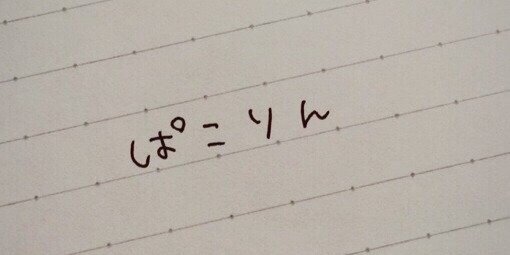 ぱこりん